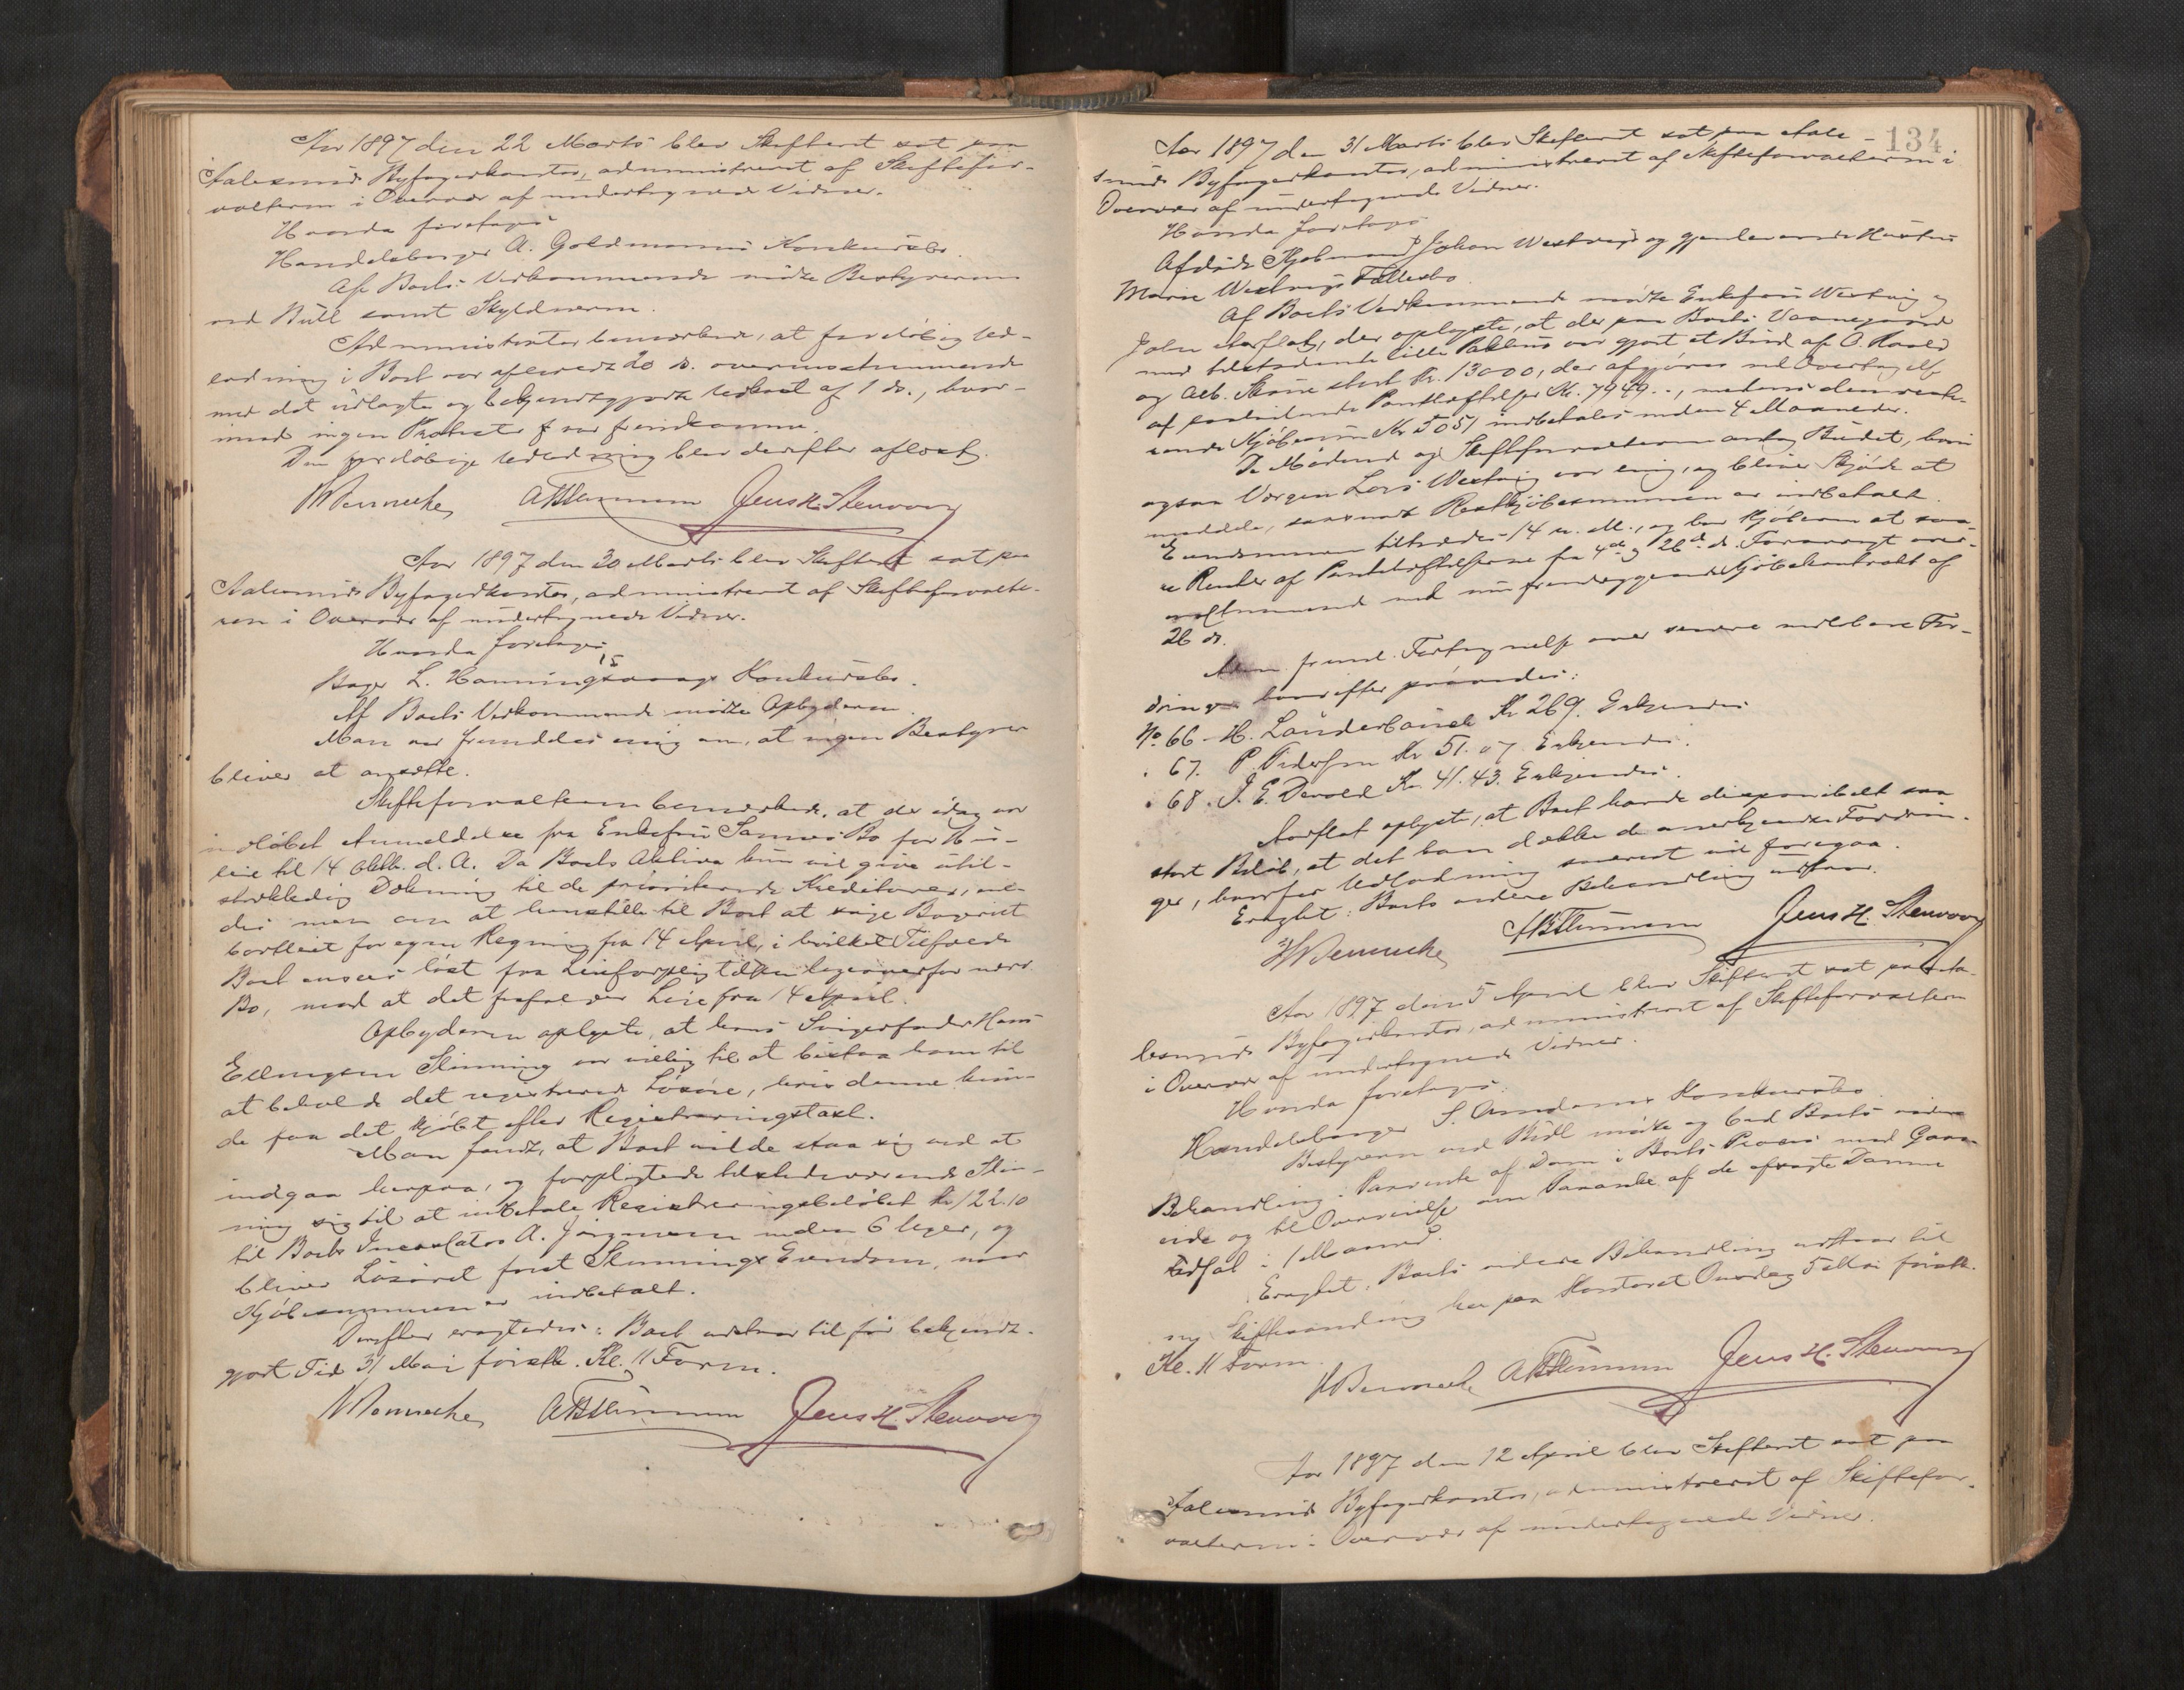 Aar 1897 den 22 Marts blev Skifteret sat paa
Aalesunds Byfogedkontor, administreret af Skiftefor-
valteren i Overvær af undertegnede Vidner.
Hvorda foretoges
Handelsborger A. Goldmanns Konkursbo.
Af Boets Vedkommende mødte Bestyreren
ved Bull samt Skyldneren.
Administrator bemærkede, at foreløbig Ud-
lodning i Boet var afsluttet 20 ds. overensstemmende
med det udlagte og bekjendtgjorte Udkast af 1 ds., hvor-
imod ingen Protester var fremkomne.
Den foreløbige Udlodning blev derefter aflæst.
Bennecke Jens H. Stenvaag
Aar 1897 den 30 Marts blev Skifteret sat paa
Aalesunds Byfogedkontor, administreret af Skifteforvalte-
ren i Overvær af undertegnede Vidner.
Hvorda foretoges
Bager L. Hanningsvaags Konkursbo.
Af Boets Vedkommende mødte Opbyderen.
Man var fremdeles enig om, at ingen Bestyrer
bliver at ansætte.
Skifteforvalteren bemærkede, at der idag var
indløbet Anmeldelse fra Enkefru Bo for Hus-
leie til 14 Oktb. d. A. Da Boets Aktiva kun vil give util-
strækkelig Dækning til de prioriterede Kreditorer, en-
des man om at henstille til Boet at søge Bageriet
bortleiet for egen Regning fra 14 April, i hvilket Tilfælde
Boet ansees løst fra Leieforpligtelsen ligeoverfor nævnte
Bo, mod at det frafalder Leie fra 14 April.
Opbyderen oplyste, at hans Svigerfader Hans
Ellingsen Slinning var villig til at bistaa ham til
at beholde det registrerede Løsøre, hvis denne kun-
de faa det kjøbt efter Registreringstaxt.
Man fandt, at Boet vilde staa sig ved at
indgaa herpaa, og forpligtede tilstedeværende Slin-
ning sig til at indbetale Registreringsbeløbet Kr. 122.10
til Boets Incassator A. Jørgensen inden 6 Uger, og
bliver Løsøret først Slinnings Eiendom, naar
Kjøbesummen er indbetalt.
Derefter eragtedes: Boet udstaar til før bekjendt-
gjort Tid 31 Mai førstk. Kl. 11 Form.
Bennecke Jens H. Stenvaag
134
Aar 1897 den 31 Marts blev Skifteret sat paa Aale-
sunds Byfogedkontor, administreret af Skifteforvalteren i
Overvær af undertegnede Vidner.
Hvorda foretoges
Afdøde Kjøbmand Johan Westvigs og gjenlevende Hustru
Marie Westvigs Fællesbo.
Af Boets Vedkommende mødte Enkefru Westvig og
John Aarflot, der oplyste, at der paa Boets Vaanegaard
med tilstødende lille Pakhus var gjort et Bud af O. Roald
og Aeb. Skaue stort Kr. 13000, der afgjøres ved Overtagelse
af paahvilende Panthæftelser Kr. 7949.-, medens den reste-
rende Kjøbesum Kr. 5051 indbetales inden 4 Maaneder.
De Mødende og Skifteforvalteren antog Budet, hvori
ogsaa Vergen Lars Westvig var enig, og bliver Skjøde at
meddele, saasnart Restkjøbesummen er indbetalt.
Eiendommen tiltrædes 14 n. M., og har Kjøberen at sva-
re Renter af Panthæftelserne fra 4de og 26de ds. Forøvrigt over-
ensstemmende med nu fremlæggende Kjøbekontrakt af
26 ds.
Man freml. Fortegnelse over senere meldte For-
dringer hvorefter prøvedes:
No. 66 - H. Kr 269. Erkjendes
" 67. P. Pedersen Kr 51.07 Erkjendes.
" 68. J. E. Devold Kr. 41.43. Erkjendes.
Aarflot oplyste, at Boet havde disponibelt saa
stort Beløb, at det kan dække de anerkjendte Fordrin-
ger, hvorfor Udlodning snarest vil foregaa.
Eragtet: Boets videre Behandling udstaar.
Bennecke Jens H. Stenvaag
Aar 1897 den 5 April blev Skifteret sat paa Aa-
lesunds Byfogedkontor, administreret af Skifteforvalteren
i Overvær af undertegnede Vidner.
Hvorda foretoges
Handelsborger S. Amdams Konkursbo.
Bestyreren ved Bull mødte og bad Boets videre
Behandling i Paavente af Dom i Boets Proces mod Gaas-
eide og til Overveielse om Paaanke af de afsagte Domme
udsat i 1 Maaned.
Eragtet, Boets videre Behandling udstaar til
ny Skiftesamling her paa Kontoret Onsdag 5 Mai førstk.
Kl. 11 Form.
Bennecke Jens H. Stenvaag
Aar 1897 den 12 April blev Skifteret sat paa
Aalesunds Byfogedkontor, administreret af Skiftefor-
valteren i Overvær af undertegnede Vidner.